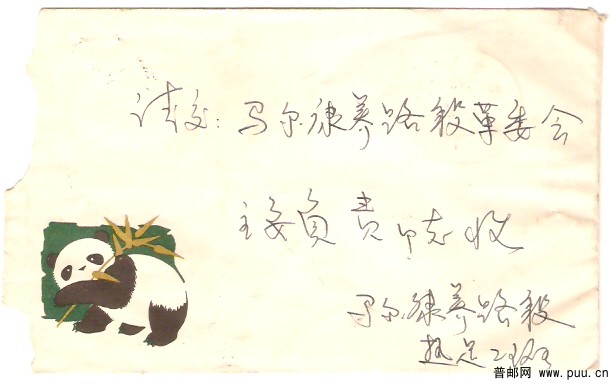 请交：马尔康养路段革委会
主委负责同志收
马尔康养路段
热足工班
普邮网 www.puu.cn